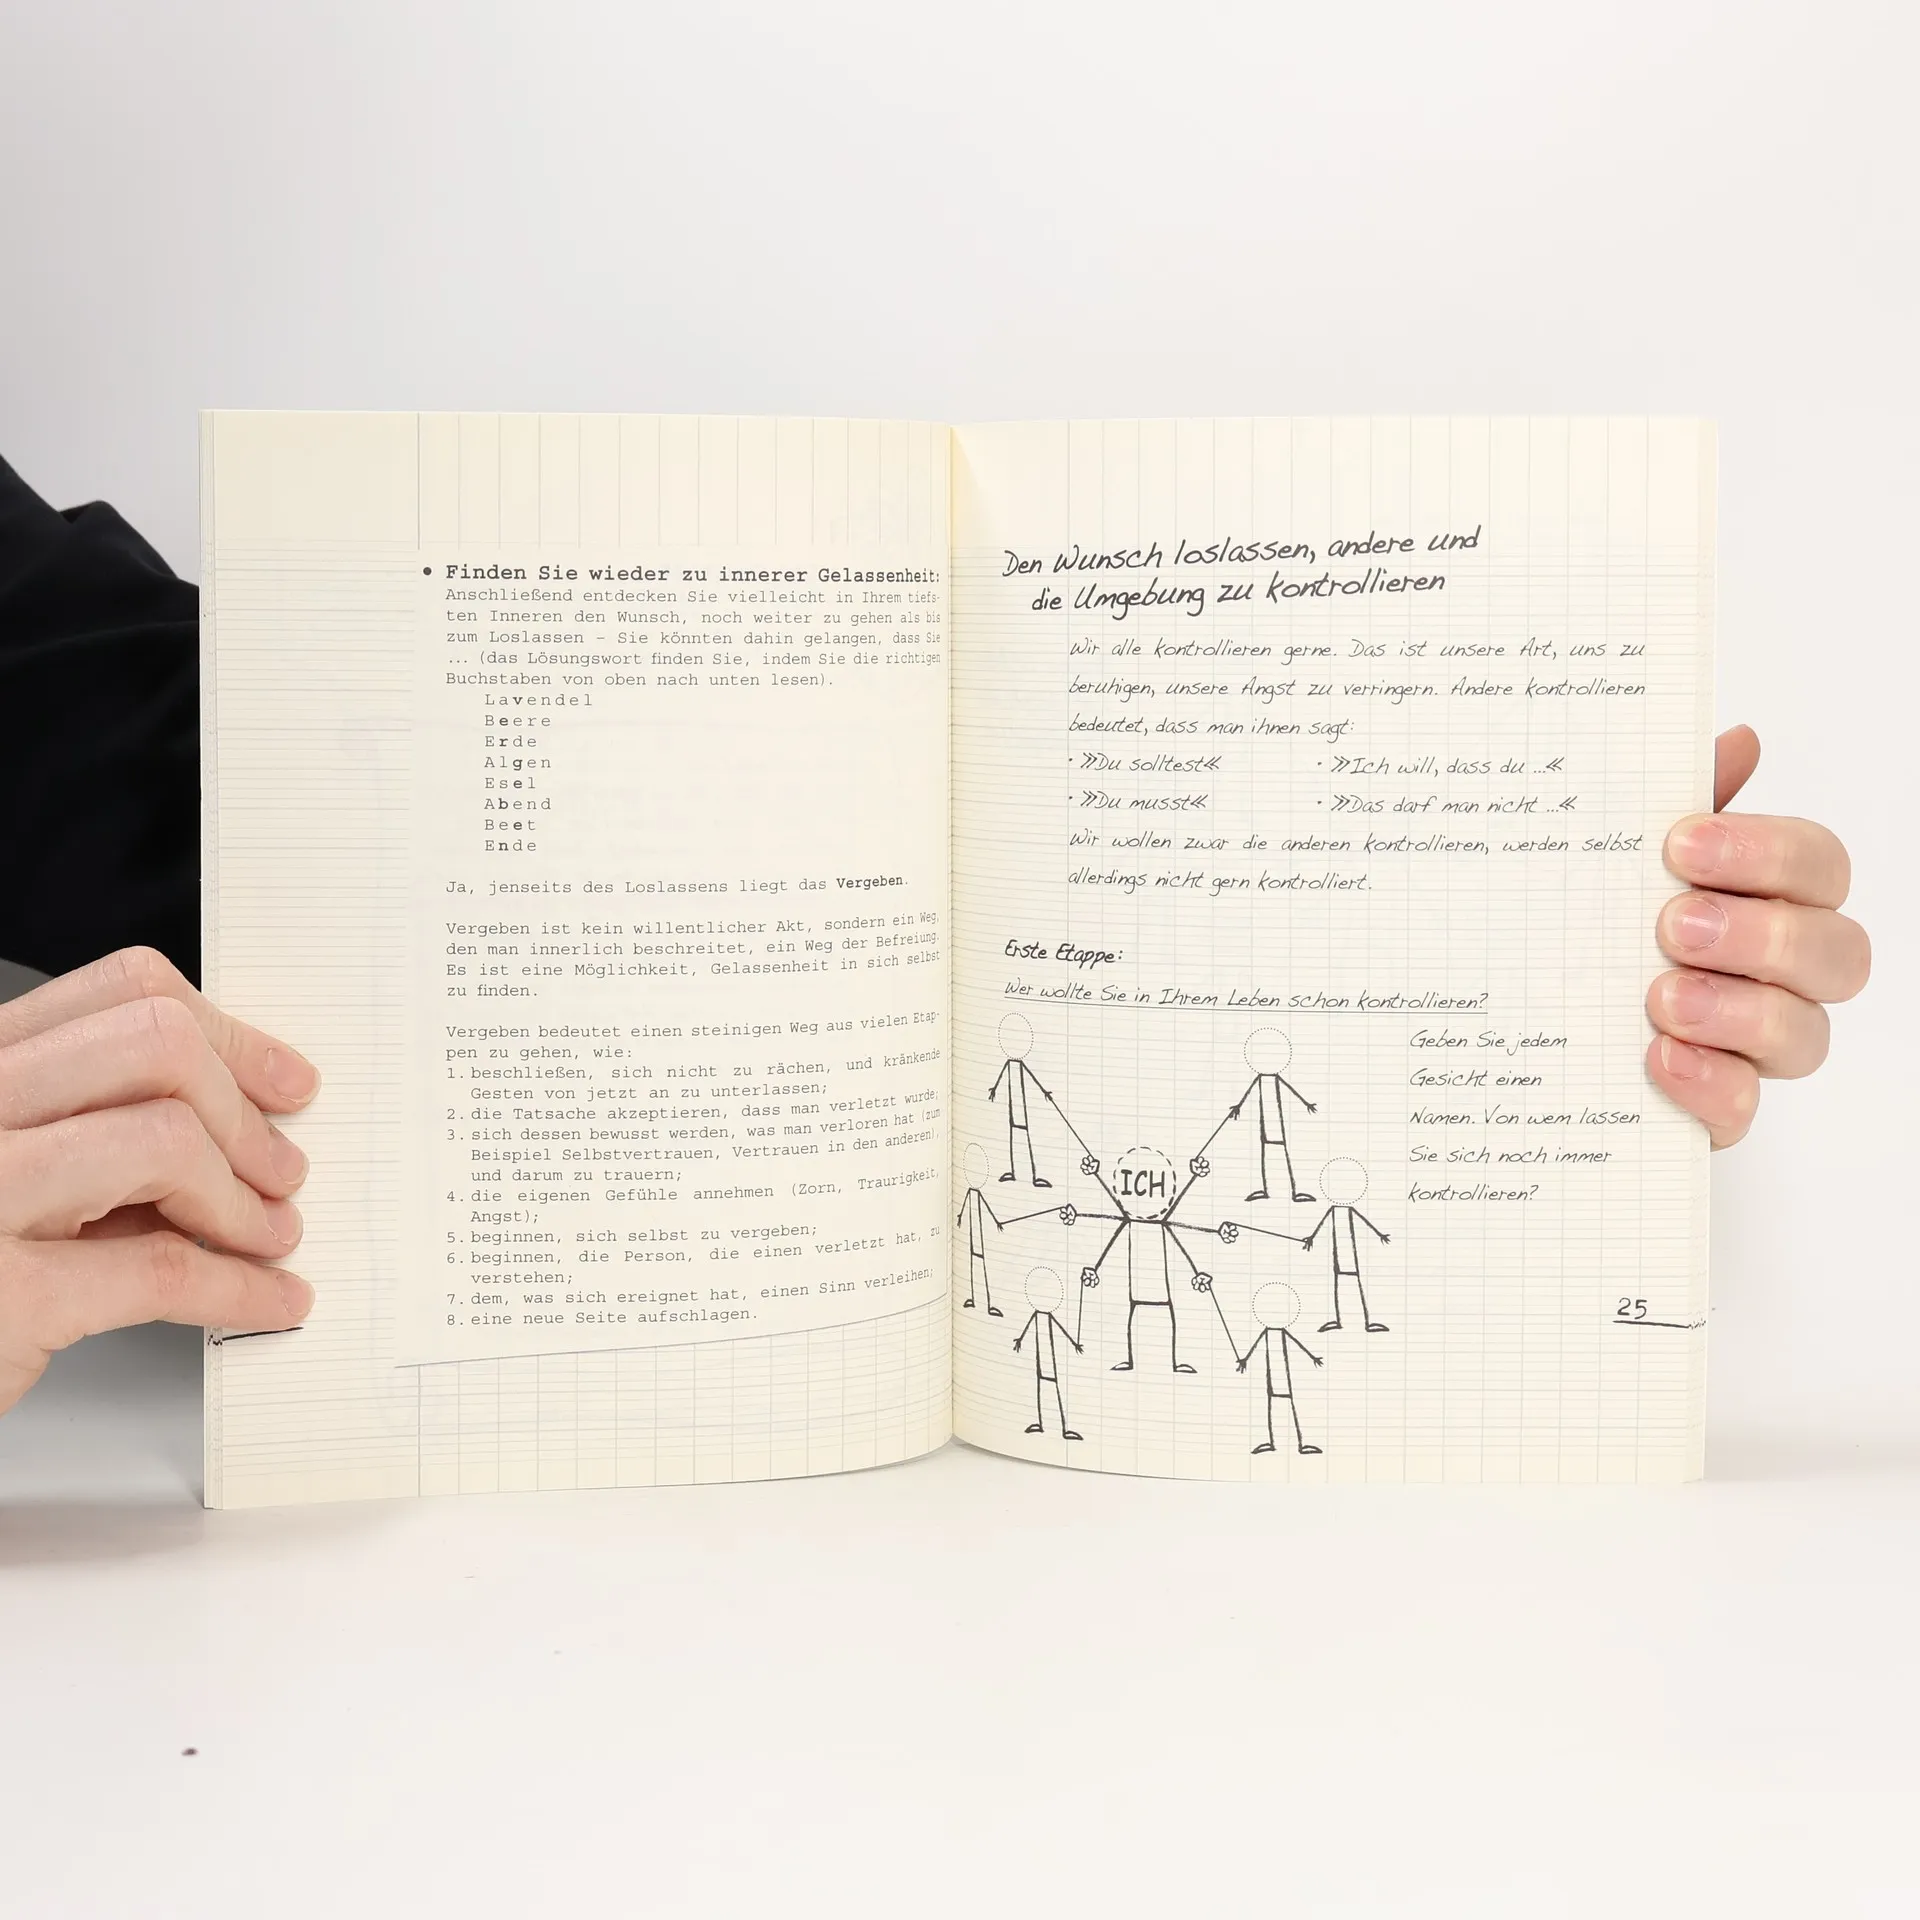 • Finden Sie wieder zu innerer Gelassenheit:
Anschließend entdecken Sie vielleicht in Ihrem tiefs-
ten Inneren den Wunsch, noch weiter zu gehen als bis
zum Loslassen – Sie könnten dahin gelangen, dass Sie
... (das Lösungswort finden Sie, indem Sie die richtigen
Buchstaben von oben nach unten lesen).
Lavendel
Beere
Erde
Algen
Esel
Abend
Beet
Ende
Ja, jenseits des Loslassens liegt das Vergeben.
Vergeben ist kein willentlicher Akt, sondern ein Weg,
den man innerlich beschreitet, ein Weg der Befreiung.
Es ist eine Möglichkeit, Gelassenheit in sich selbst
zu finden.
Vergeben bedeutet einen steinigen Weg aus vielen Etap-
pen zu gehen, wie:
1. beschließen, sich nicht zu rächen, und kränkende
Gesten von jetzt an zu unterlassen;
2. die Tatsache akzeptieren, dass man verletzt wurde;
3. sich dessen bewusst werden, was man verloren hat (zum
Beispiel Selbstvertrauen, Vertrauen in den anderen),
und darum zu trauern;
4. die eigenen Gefühle annehmen (Zorn, Traurigkeit,
Angst);
5. beginnen, sich selbst zu vergeben;
6. beginnen, die Person, die einen verletzt hat, zu
verstehen;
7. dem, was sich ereignet hat, einen Sinn verleihen;
8. eine neue Seite aufschlagen.
Den Wunsch loslassen, andere und
die Umgebung zu kontrollieren
Wir alle kontrollieren gerne. Das ist unsere Art, uns zu
beruhigen, unsere Angst zu verringern. Andere kontrollieren
bedeutet, dass man ihnen sagt:
· »Du solltest«
· »Ich will, dass du ...«
· »Du musst«
· »Das darf man nicht ...«
Wir wollen zwar die anderen kontrollieren, werden selbst
allerdings nicht gern kontrolliert.
Erste Etappe:
Wer wollte Sie in Ihrem Leben schon kontrollieren?
Geben Sie jedem
Gesicht einen
Namen. Von wem lassen
Sie sich noch immer
kontrollieren?
ICH
25